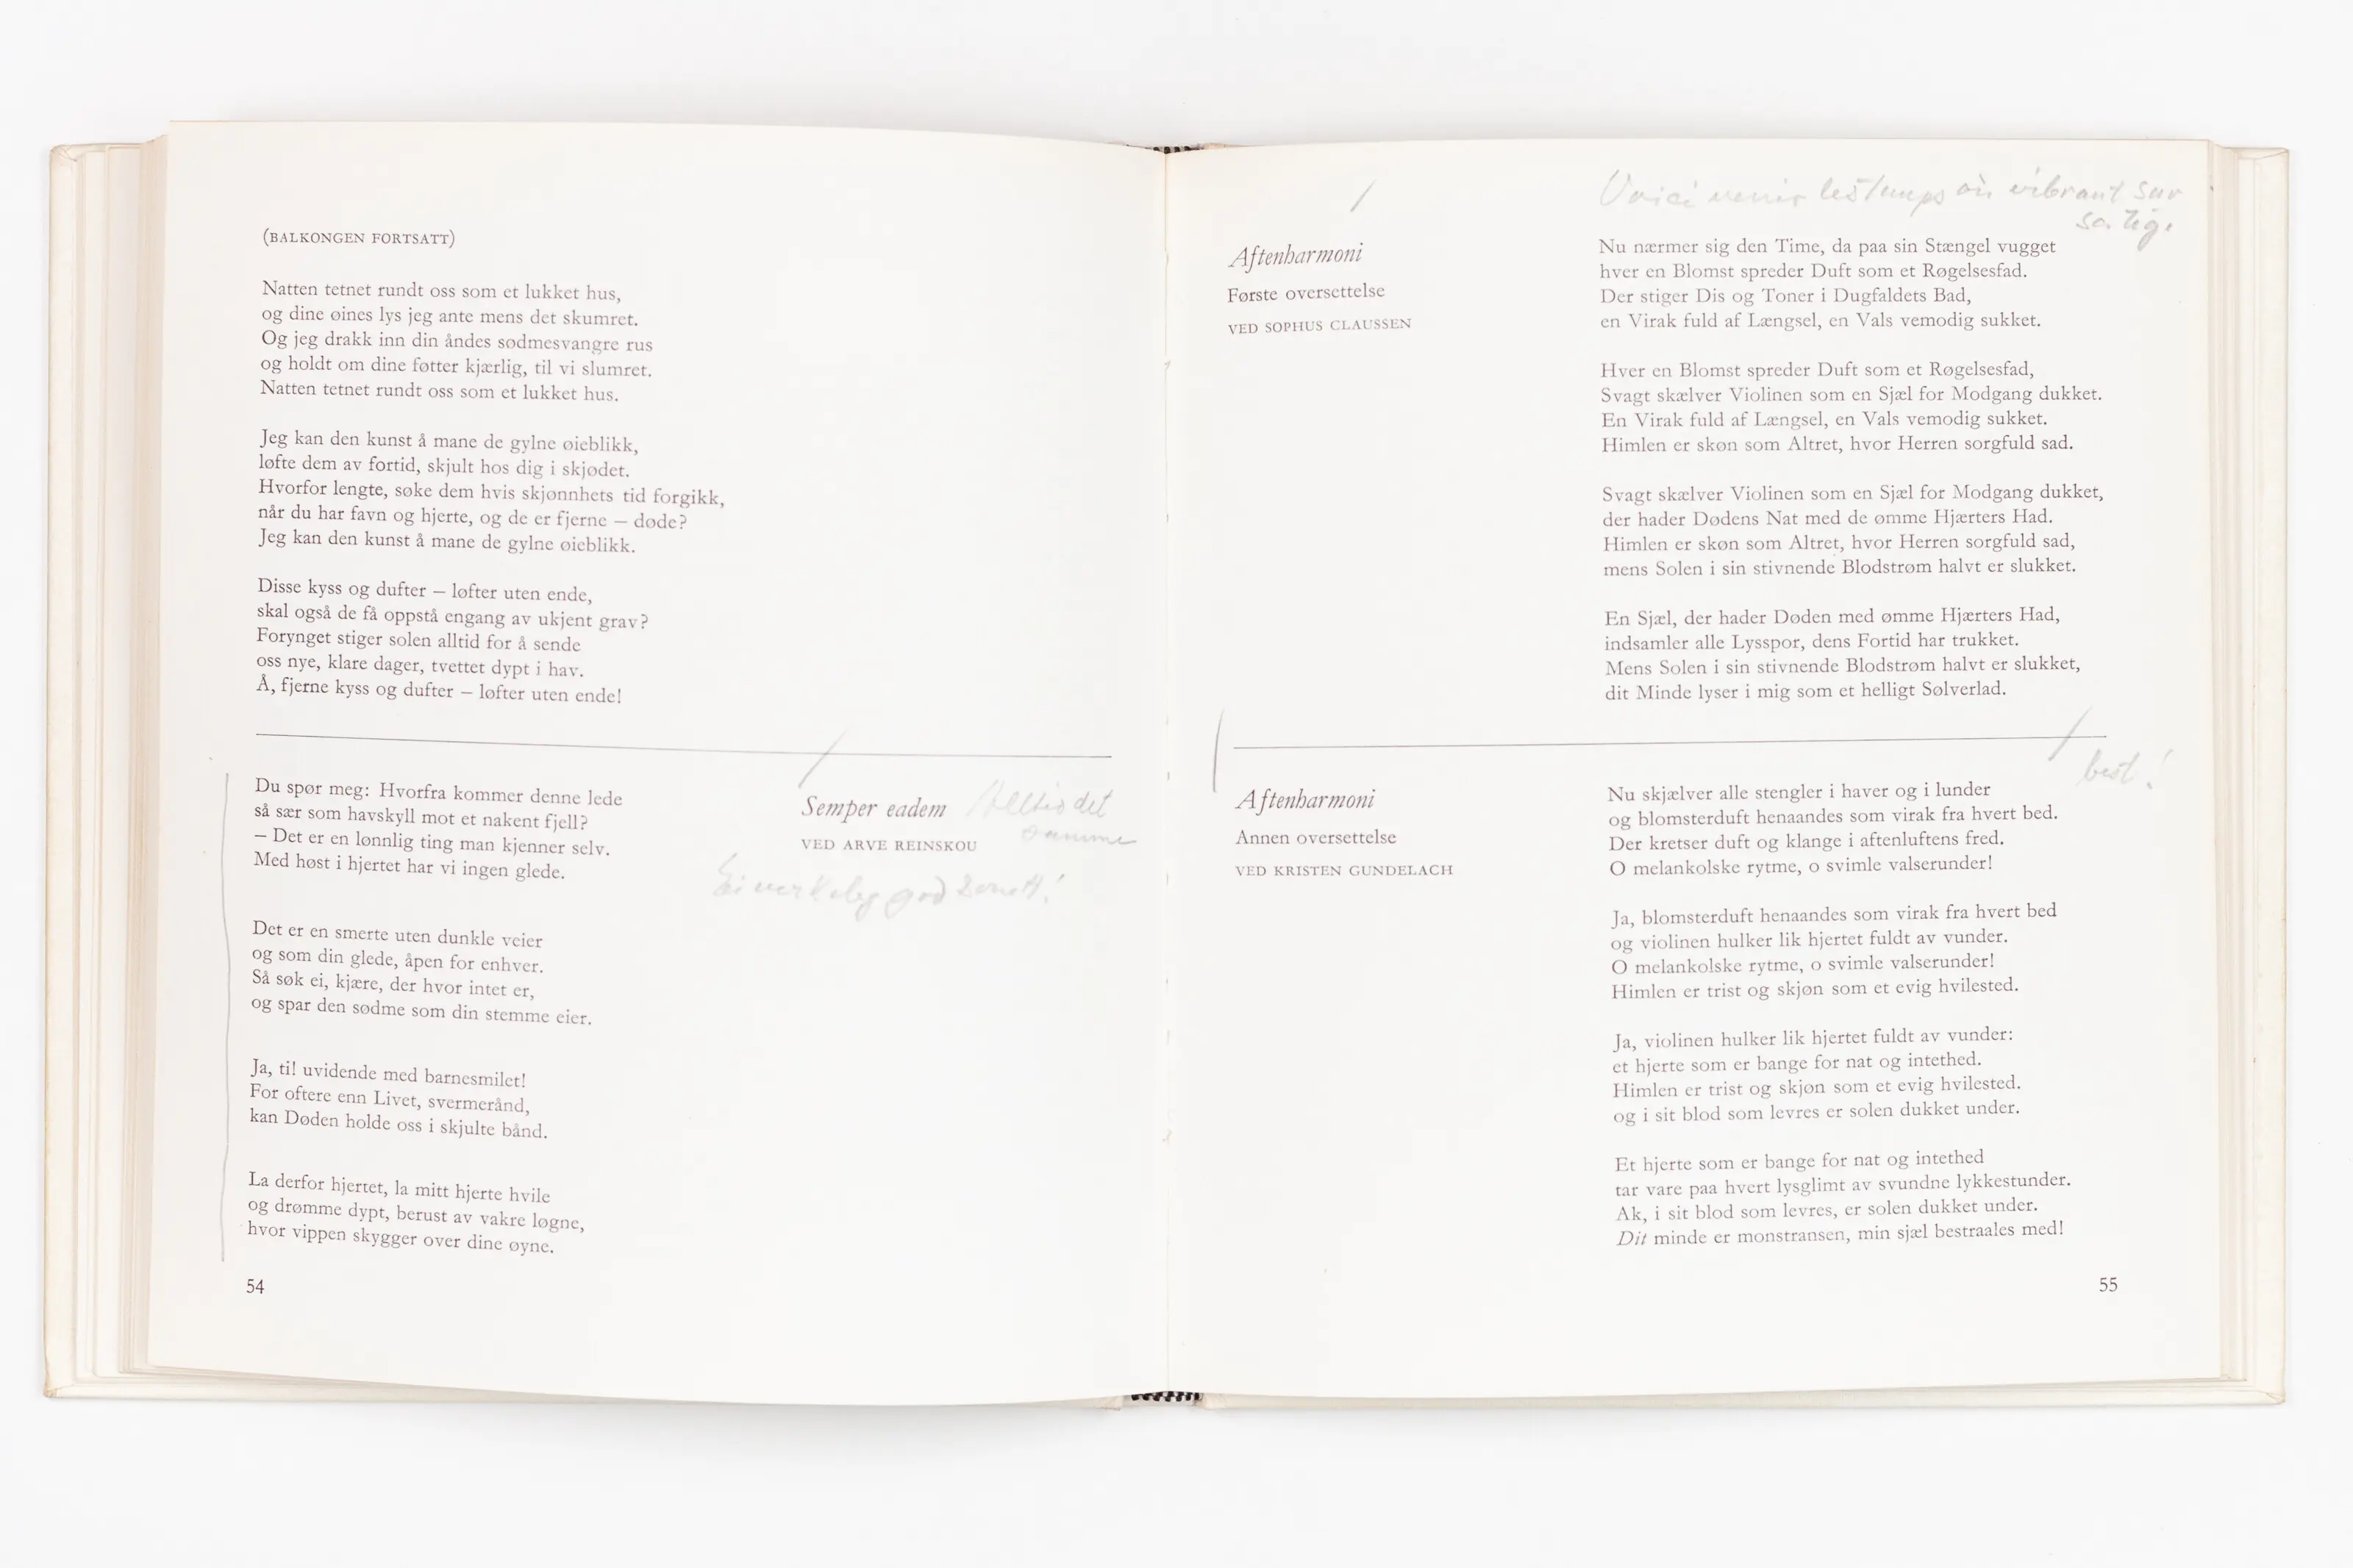 (BALKONGEN FORTSATT)
Natten tetnet rundt oss som et lukket hus,
og dine øines lys jeg ante mens det skumret.
Og jeg drakk inn din åndes sødmesvangre rus
og holdt om dine føtter kjærlig, til vi slumret.
Natten tetnet rundt oss som et lukket hus.
Jeg kan den kunst å mane de gylne øieblikk,
løfte dem av fortid, skjult hos dig i skjødet.
Hvorfor lengte, søke dem hvis skjønnhets tid forgikk,
når du har favn og hjerte, og de er fjerne – døde?
Jeg kan den kunst å mane de gylne øieblikk.
Disse kyss og dufter – løfter uten ende,
skal også de få oppstå engang av ukjent grav?
Forynget stiger solen alltid for å sende
oss nye, klare dager, tvettet dypt i hav.
Å, fjerne kyss og dufter – løfter uten ende!
Du spør meg: Hvorfra kommer denne lede
så sær som havskyll mot et nakent fjell?
– Det er en lønnlig ting man kjenner selv.
Med høst i hjertet har vi ingen glede.
Det er en smerte uten dunkle veier
og som din glede, åpen for enhver.
Så søk ei, kjære, der hvor intet er,
og spar den sødme som din stemme eier.
Ja, ti! uvidende med barnesmilet!
For oftere enn Livet, svermerånd,
kan Døden holde oss i skjulte bånd.
La derfor hjertet, la mitt hjerte hvile
og drømme dypt, berust av vakre løgne,
hvor vippen skygger over dine øyne.
Semper eadem Alltid det
samme
VED ARVE REINSKOU
god sonett!
54
Voici venir les temps où vibrant sur
sa tige
Aftenharmoni
Første oversettelse
VED SOPHUS CLAUSSEN
Nu nærmer sig den Time, da paa sin Stængel vugget
hver en Blomst spreder Duft som et Røgelsesfad.
Der stiger Dis og Toner i Dugfaldets Bad,
en Virak fuld af Længsel, en Vals vemodig sukket.
Hver en Blomst spreder Duft som et Røgelsesfad,
Svagt skælver Violinen som en Sjæl for Modgang dukket.
En Virak fuld af Længsel, en Vals vemodig sukket.
Himlen er skøn som Altret, hvor Herren sorgfuld sad.
Svagt skælver Violinen som en Sjæl for Modgang dukket,
der hader Dødens Nat med de ømme Hjærters Had.
Himlen er skøn som Altret, hvor Herren sorgfuld sad,
mens Solen i sin stivnende Blodstrøm halvt er slukket.
En Sjæl, der hader Døden med ømme Hjærters Had,
indsamler alle Lysspor, dens Fortid har trukket.
Mens Solen i sin stivnende Blodstrøm halvt er slukket,
dit Minde lyser i mig som et helligt Sølverlad.
best!
Aftenharmoni
Annen oversettelse
VED KRISTEN GUNDELACH
Nu skjælver alle stengler i haver og i lunder
og blomsterduft henaandes som virak fra hvert bed.
Der kretser duft og klange i aftenluftens fred.
O melankolske rytme, o svimle valserunder!
Ja, blomsterduft henaandes som virak fra hvert bed
og violinen hulker lik hjertet fuldt av vunder.
O melankolske rytme, o svimle valserunder!
Himlen er trist og skjøn som et evig hvilested.
Ja, violinen hulker lik hjertet fuldt av vunder:
et hjerte som er bange for nat og intethed.
Himlen er trist og skjøn som et evig hvilested.
og i sit blod som levres er solen dukket under.
Et hjerte som er bange for nat og intethed
tar vare paa hvert lysglimt av svundne lykkestunder.
Ak, i sit blod som levres, er solen dukket under.
Dit minde er monstransen, min sjæl bestraales med!
55